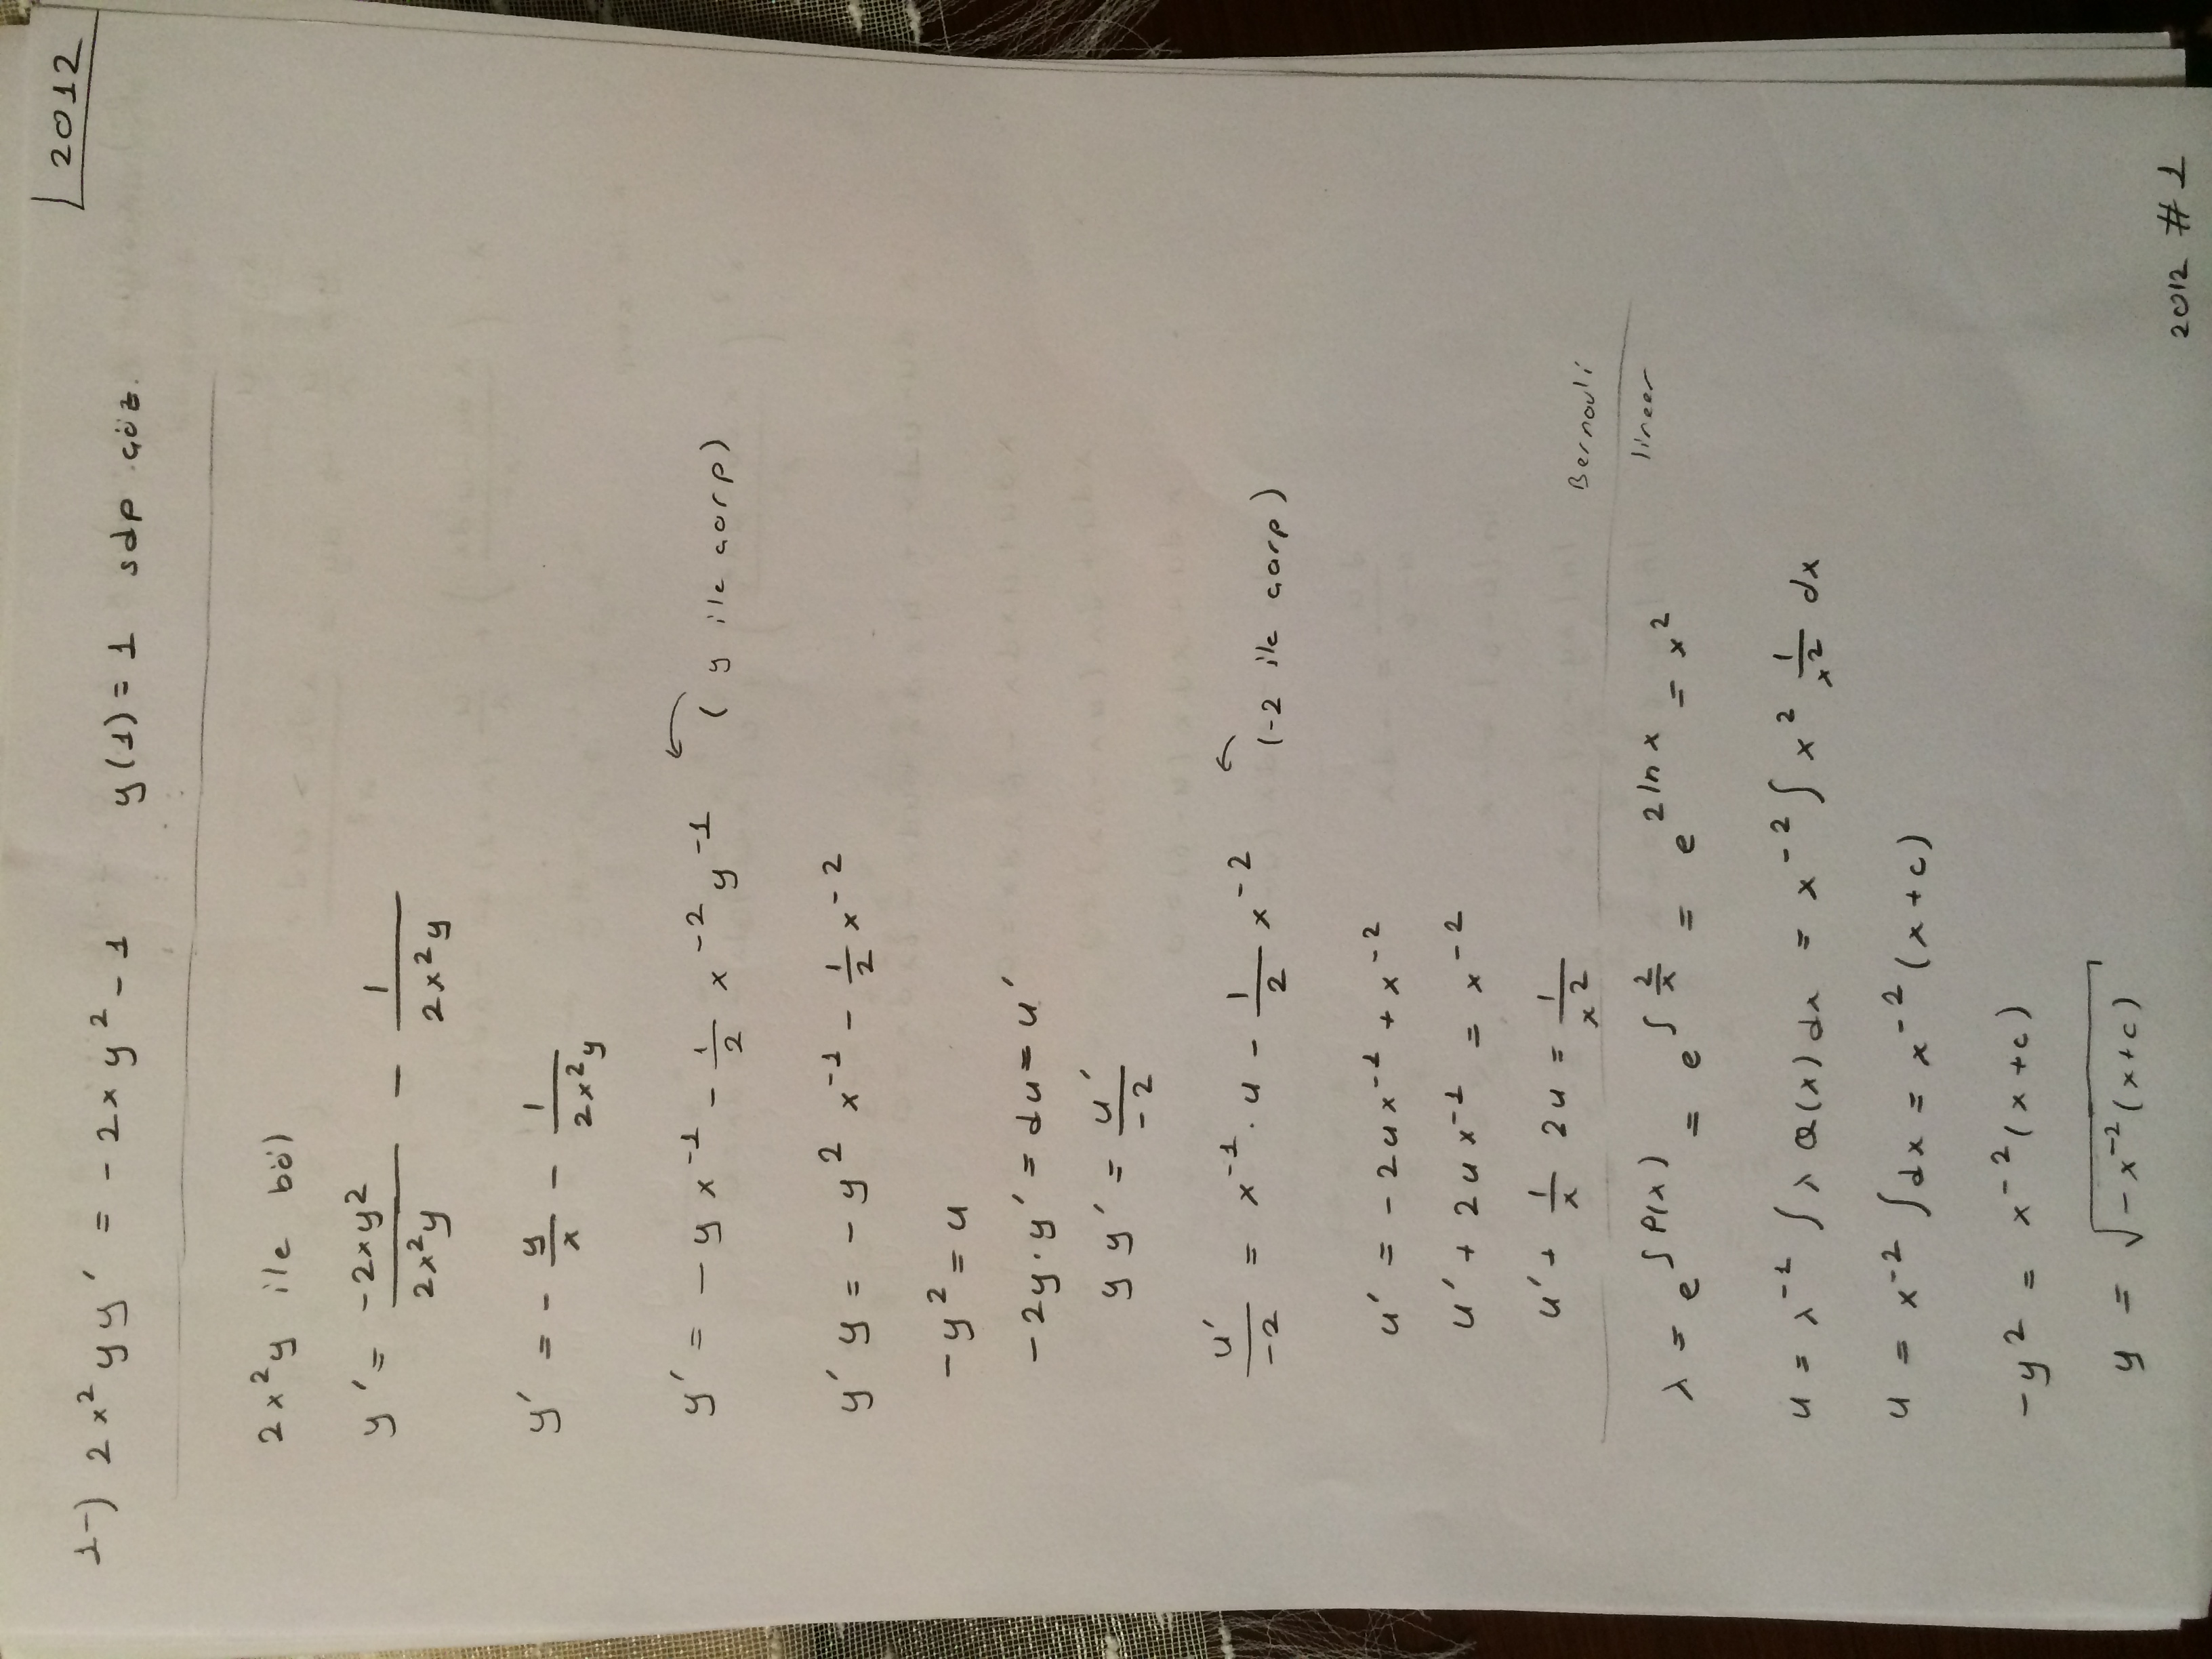 2012
1-) 2x²yy' = -2xy² - 1 y(1) = 1 sdp çöz.
2x²y ile böl
y' = \frac{-2xy²}{2x²y} - \frac{1}{2x²y}
y' = - \frac{y}{x} - \frac{1}{2x²y}
y' = -y x⁻¹ - \frac{1}{2} x⁻² y⁻¹ ← (y ile çarp)
y' y = -y² x⁻¹ - \frac{1}{2} x⁻²
-y² = u
-2y · y' = du = u'
y y' = \frac{u'}{-2}
\frac{u'}{-2} = x⁻¹ · u - \frac{1}{2} x⁻² ← (-2 ile çarp)
u' = -2ux⁻¹ + x⁻²
u' + 2ux⁻¹ = x⁻²
u' + \frac{1}{x} 2u = \frac{1}{x²}
Bernouli
lineer
λ = e^{∫P(x)} = e^{∫\frac{2}{x}} = e^{2 ln x} = x²
u = λ⁻¹ ∫λ Q(x) dx = x⁻² ∫x² \frac{1}{x²} dx
u = x⁻² ∫dx = x⁻² (x + c)
-y² = x⁻² (x + c)
y = √{-x⁻² (x + c)}
2012 #1